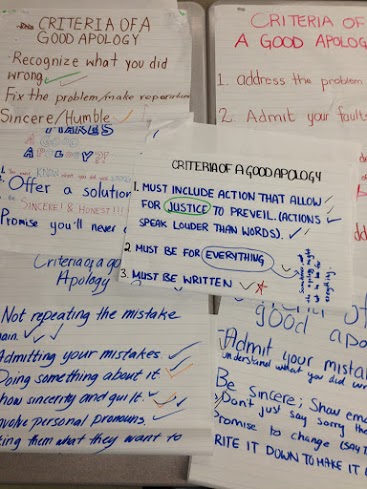 CRITERIA OF A
GOOD APOLOGY
Recognize what you did
wrong
Fix the problem/make reparation
Sincere/Humble
CRITERIA OF
A GOOD APOLOG
1. address the problem
2. Admit your fault
MAKES
A GOOD
APOLOGY?!
Offer a solution
SINCERE! & HONEST!!!
Promise you'll never
CRITERIA OF A GOOD APOLOGY
1. MUST INCLUDE ACTION THAT ALLOW
FOR JUSTICE TO PREVEIL. (ACTIONS
SPEAK LOUDER THAN WORDS).
2. MUST BE FOR EVERYTHING
3. MUST BE WRITTEN
Criteria of a go
Apology
Not repeating the mistake
ain.
Admitting your mistakes.
Doing something about it.
how sincerity and guilt.
nvolve personal pronouns.
king them what they want to
good apo
Admit your mista
understand what you did wr
Be sincere; Show emo
Don't just say sorry the
Promise to change (SAY T
RITE IT DOWN TO MAKE IT